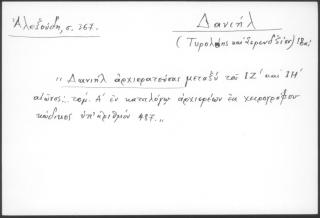 Ἀλεξούδη, σ. 267.
Δανιήλ
(Τυρολόης καὶ Σερεντζίου) 18αι
"Δανιήλ ἀρχιερατεύσας μεταξύ τοῦ ΙΖ′ καὶ ΙΗ′
αἰῶνος. τομ. Α′ ἐν καταλόγῳ ἀρχιερέων ἐκ χειρογράφου
κώδικος ὑπ' ἀριθμόν 487."